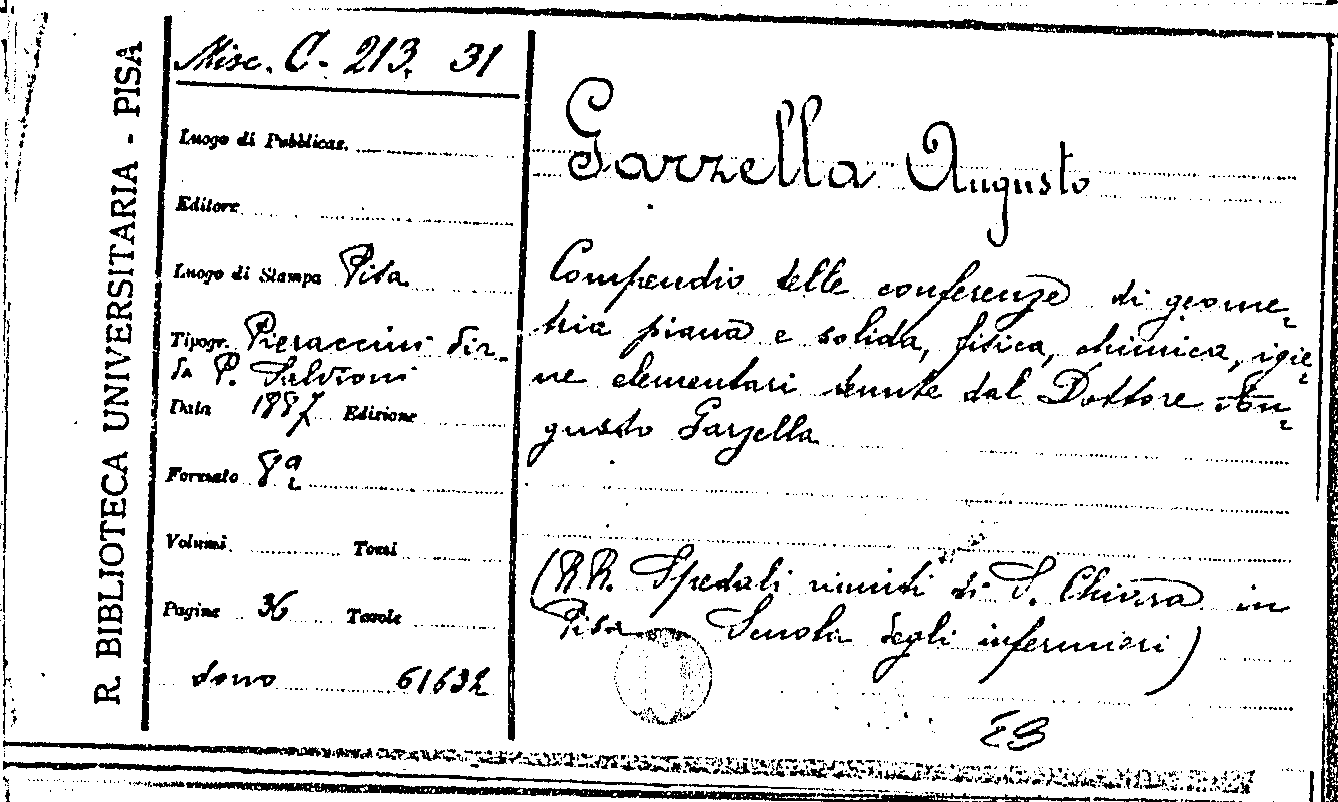 R. BIBLIOTECA UNIVERSITARIA - PISA
Misc. C. 213. 31
Luogo di Pubblicaz.
Editore
Luogo di Stampa Pisa
Tipogr. Pieraccini dir-
ta P. Salvioni
Data 1887 Edizione
Formato 8º
Volumi Tomi
Pagine 36 Tavole
dono 61632
Garzella Augusto
Compendio delle conferenze di geome-
tria piana e solida, fisica, chimica, igie-
ne elementari tenute dal Dottore Au-
gusto Garzella
(RR. Spedali riuniti di S. Chiara in
Pisa Scuola degli infermieri)